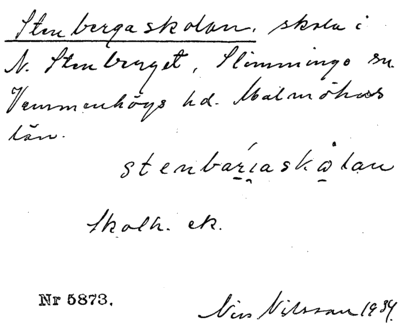 Stenbergaskolan, skola i
N. Stenberget, Slimminge sn
Vemmenhögs hd. Malmöhus
län.
stenbaríaskålan
Skolk. ek.
Nr 5873. Nils Nilsson 1934.